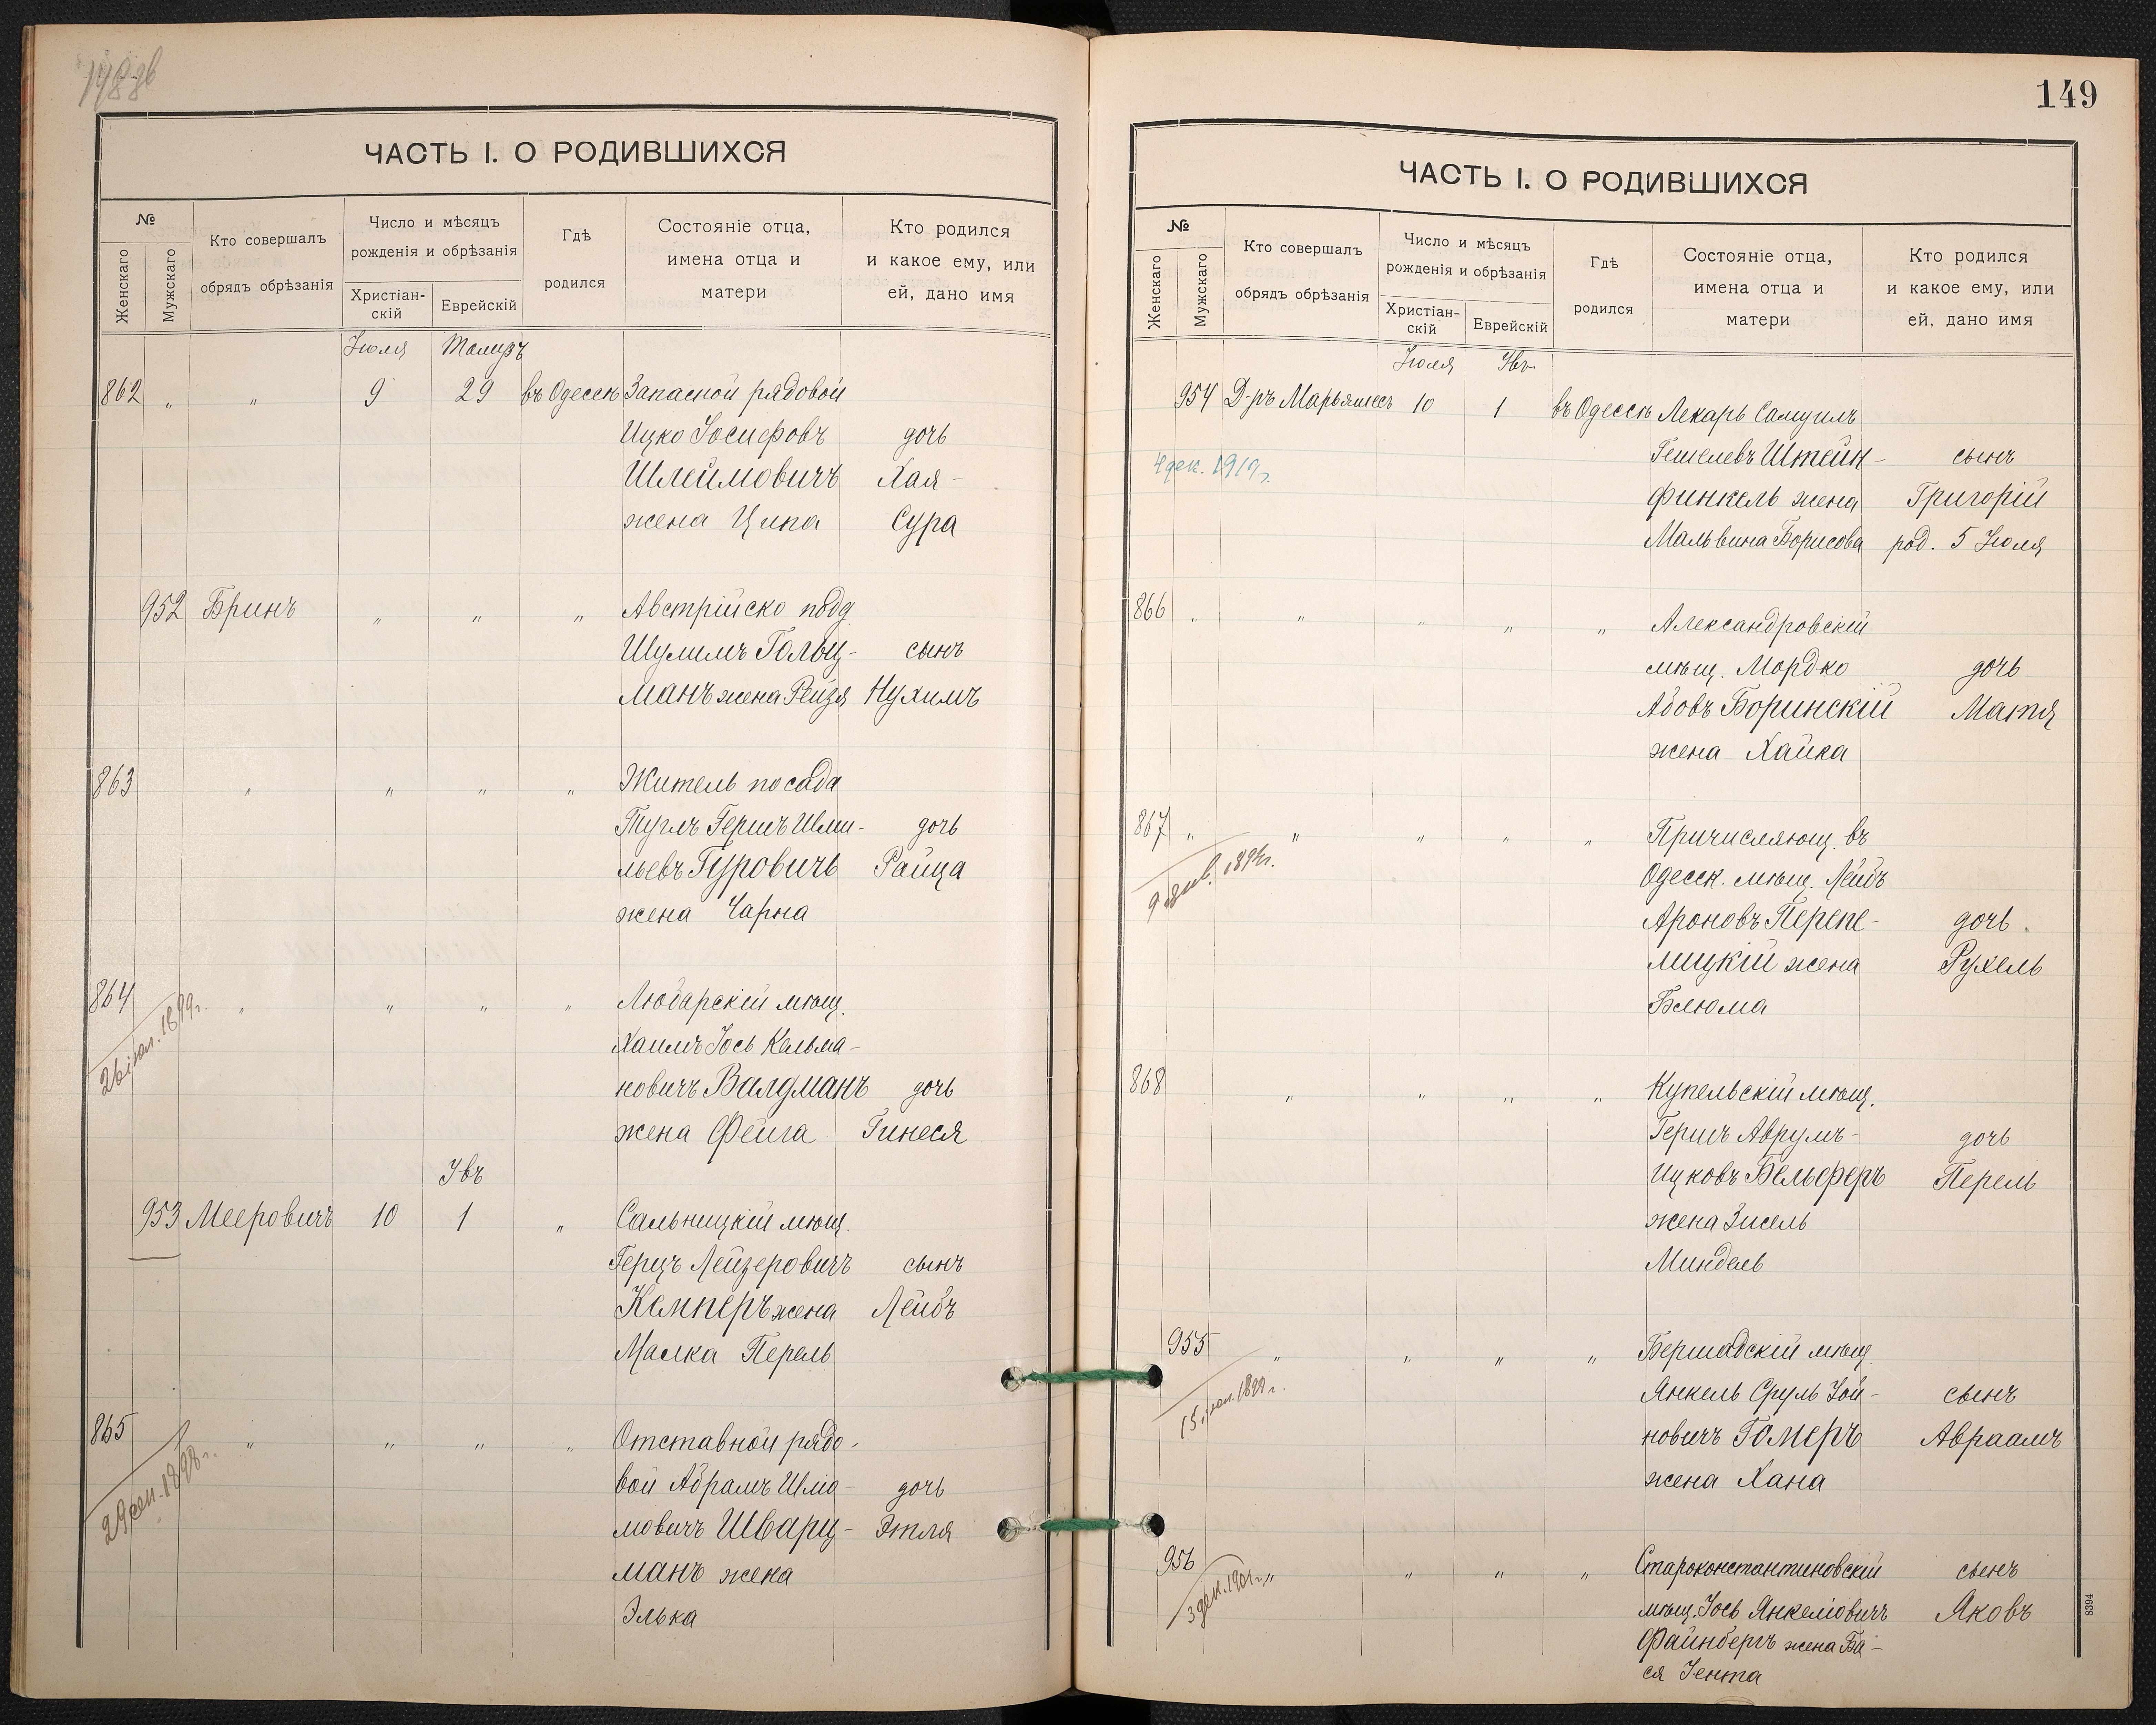 148 об
ЧАСТЬ I. О РОДИВШИХСЯ
№
Женскаго
Мужскаго
Кто совершалъ
обрядъ обрѣзанія
Число и мѣсяцъ
рожденія и обрѣзанія
Христіан-
скій
Еврейскій
Гдѣ
родился
Состояніе отца,
имена отца и
матери
Кто родился
и какое ему, или
ей, дано имя
Іюля Томузъ
862 " " 9 29 въ Одессѣ Запасной рядовой
Ицко Іосифовъ дочь
Шлеймовичъ Хая-
жена Ципа Сура
952 Бринъ " " " Австрійско подд
Шулимъ Гольц- сынъ
манъ жена Рейзя Нухимъ
863 " " " " Житель посада
Тузлъ Гершъ Шми- дочь
льевъ Гуровичъ Раица
жена Чарна
864 " " " " Любарскій мѣщ.
26 іюл. 1899 г.
Хаимъ Іось Кельма-
новичъ Валдманъ дочь
жена Фейга Гинеся
Увъ
953 Мееровичъ 10 1 " Сальницкій мѣщ.
Герцъ Лейзеровичъ сынъ
Кемперъ жена Лейбъ
Малка Перель
865 " " " " Отставной рядо-
29 сен. 1898 г.
вой Абрамъ Шліо- дочь
мовичъ Шварц- Этля
манъ жена
Элька
149
ЧАСТЬ I. О РОДИВШИХСЯ
№
Женскаго
Мужскаго
Кто совершалъ
обрядъ обрѣзанія
Число и мѣсяцъ
рожденія и обрѣзанія
Христіан-
скій
Еврейскій
Гдѣ
родился
Состояніе отца,
имена отца и
матери
Кто родился
и какое ему, или
ей, дано имя
Іюля Увъ
954 Д-ръ Марьяшесъ 10 1 въ Одессѣ Лекарь Самуилъ
4 дек. 1919 г.
Гешелевъ Штейн- сынъ
финкель жена Григорій
Мальвина Борисова род. 5 Іюля
866 " " " " " Александровскій
мѣщ. Мордко дочь
Абовъ Боринскій Матя
жена Хайка
867 " " " " " Причисляющ. въ
Одесск. мѣщ. Лейбъ
Ароновъ Перепе- дочь
лицкій жена Рухель
Блюма
868 " " " " Купельскій мѣщ.
Гершъ Аврумъ- дочь
Ицковъ Бельферъ Перель
жена Зисель
Миндель
955 " " " " Бершадскій мѣщ
15 іюл. 1899 г.
Янкель Сруль Іой- сынъ
новичъ Гомеръ Авраамъ
жена Хана
956 " " " " Староконстантиновскій сынъ
3 дек. 1901 г.
мѣщ. Іось Янкеліовичъ Яковъ
Файнбергъ жена Ба-
ся Іента
8394